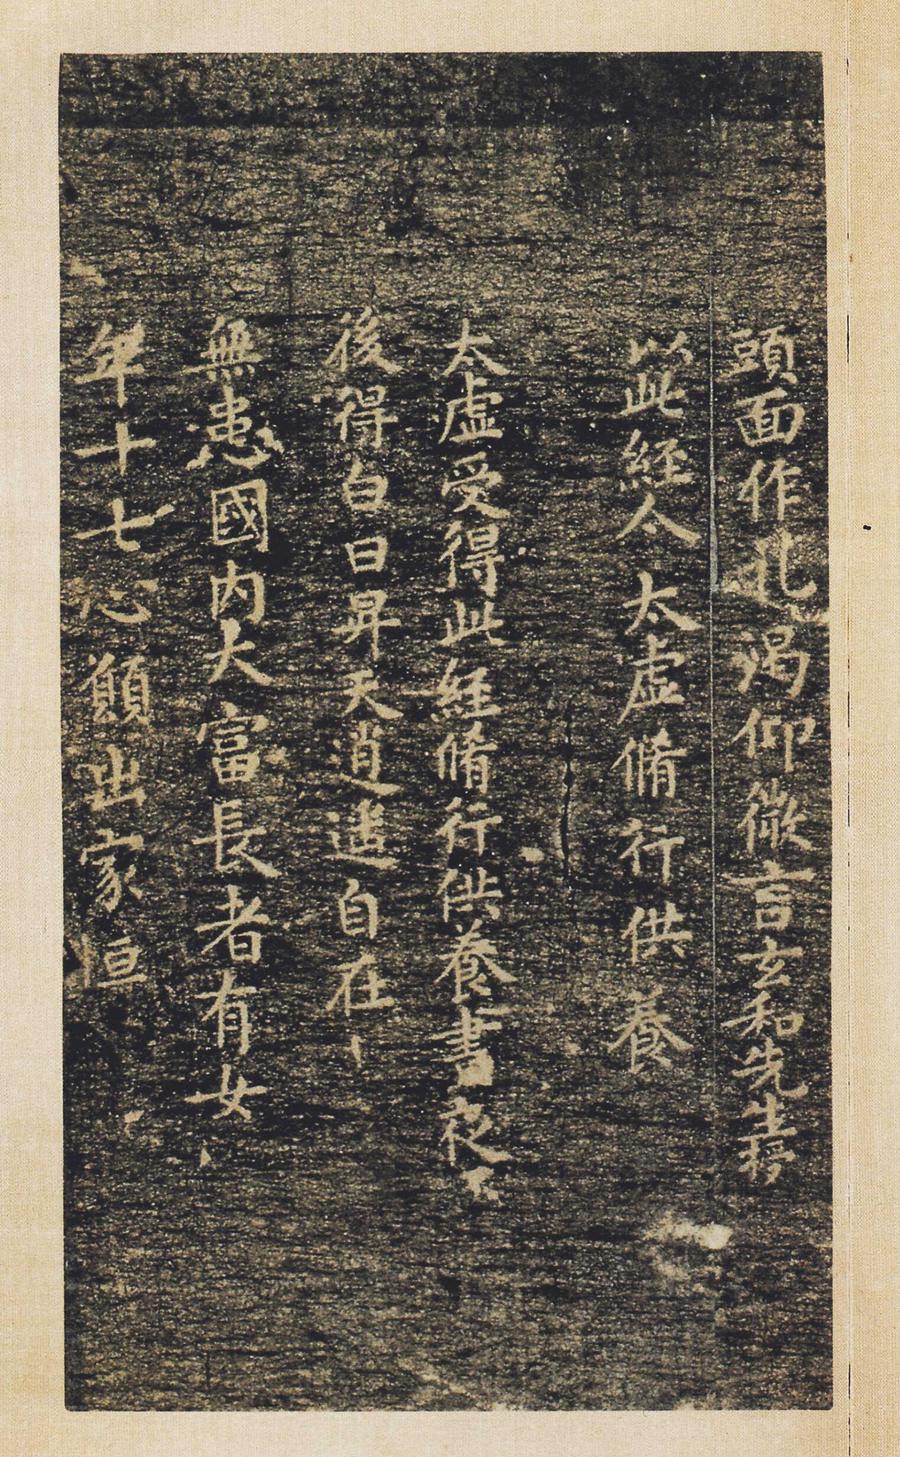 頭面作礼渴仰微言玄和先生将
以此經令太虛脩行供養
太虛受得此經脩行供養書夜不
後得白日昇天逍遥自在
無患國內大富長者有女
年十七心願出家亘